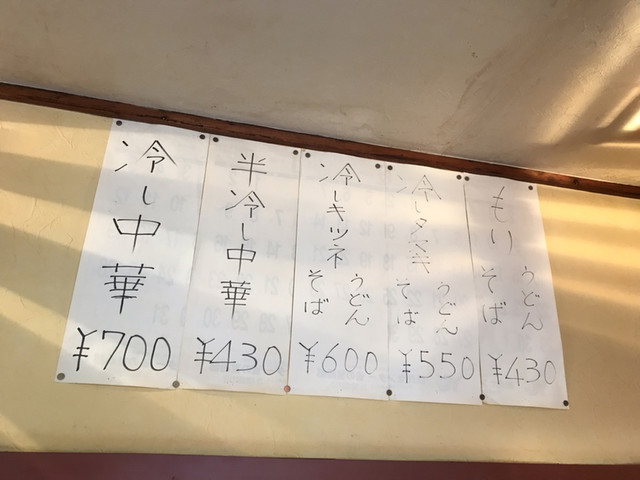 もり
うどん
そば
¥430
冷しタヌキ
うどん
そば
¥550
冷しキツネ
うどん
そば
¥600
半冷し中華
¥430
冷し中華
¥700